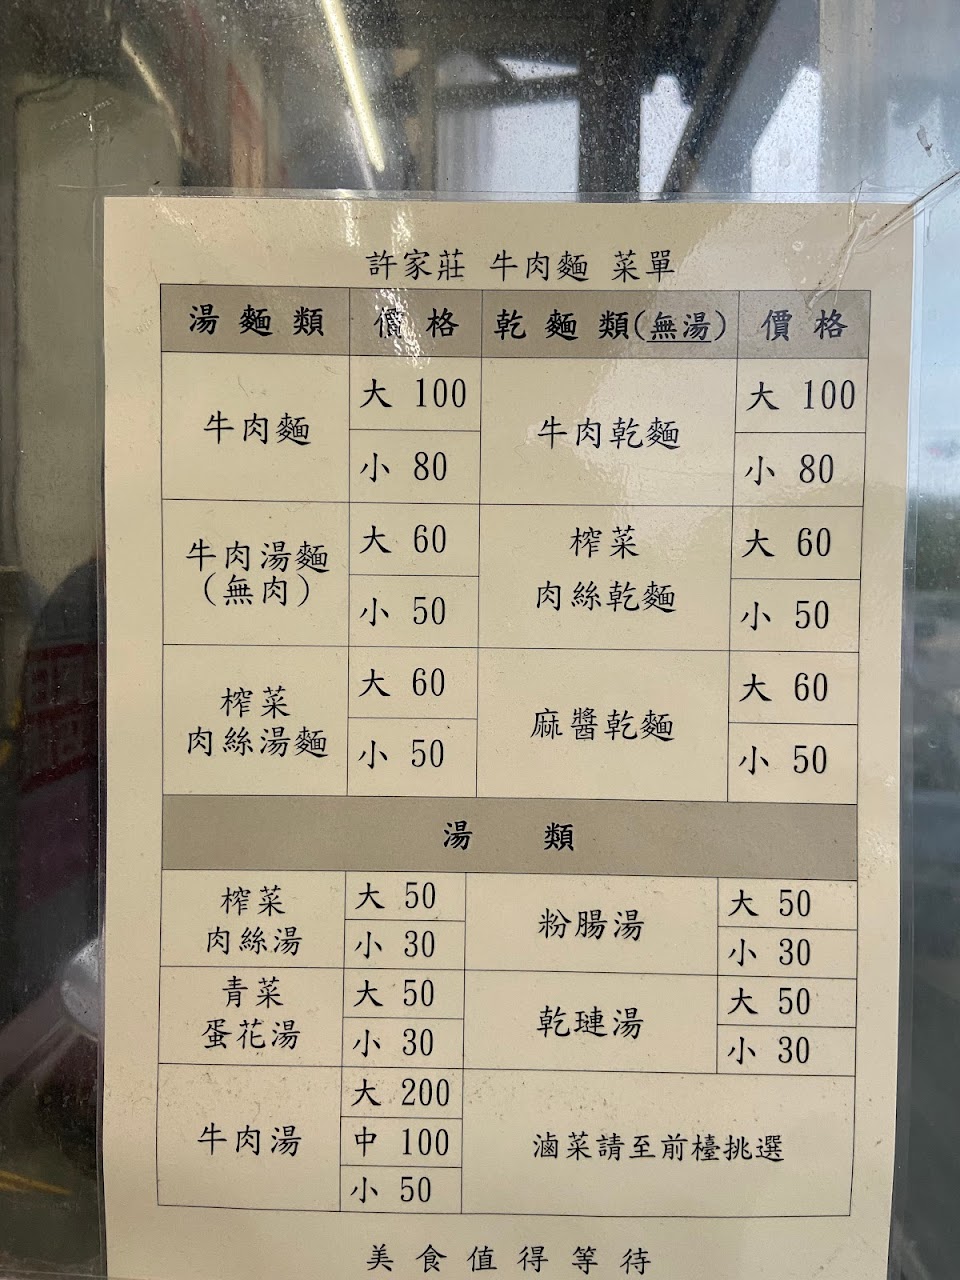 許家莊 牛肉麵 菜單
湯 麵 類 價 格 乾 麵 類(無湯) 價 格
牛肉麵 大 100 小 80 牛肉乾麵 大 100 小 80
牛肉湯麵
(無肉)
大 60 小 50
榨菜
肉絲乾麵
大 60 小 50
榨菜
肉絲湯麵
大 60 小 50
麻醬乾麵 大 60 小 50
湯 類
榨菜
肉絲湯
大 50 小 30
粉腸湯 大 50 小 30
青菜
蛋花湯
大 50 小 30
乾璉湯 大 50 小 30
牛肉湯 大 200 中 100 小 50
滷菜請至前檯挑選
美 食 值 得 等 待